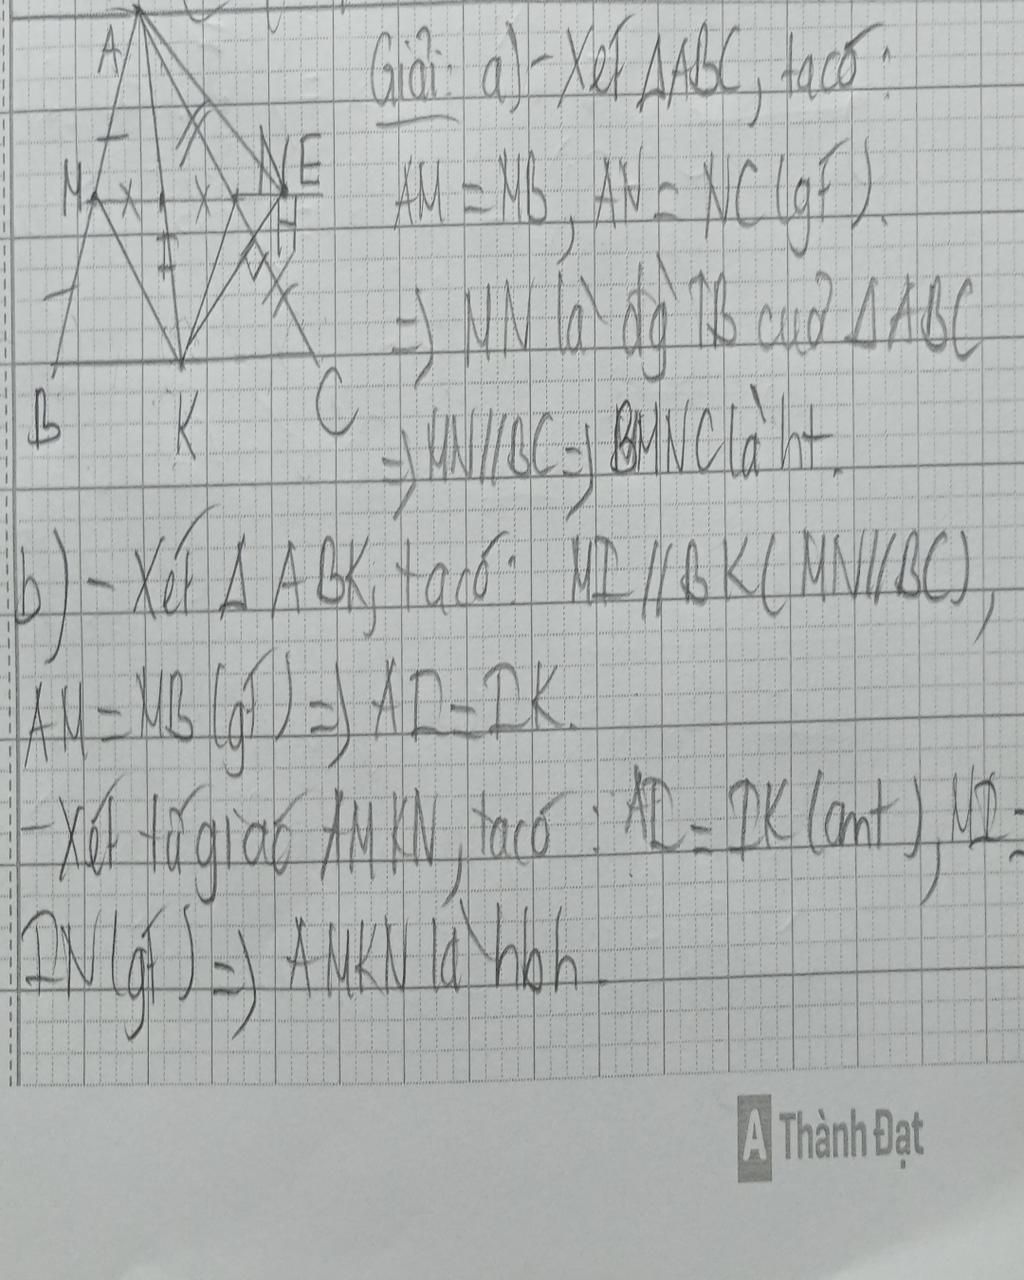 A
M
N E
I
H
B K C
Giải: a) - Xét ΔABC, ta có:
AM = MB, AN = NC (gt).
=) MN là đg TB của ΔABC
=) MN//BC =) BMNC là ht.
b) - Xét Δ ABK, ta có: MI // BK (MN//BC),
AM = MB (gt) =) AI = IK.
- Xét tứ giác AMKN, ta có: AI = IK (cmt), MI =
IN (gt) =) AMKN là hbh.
A Thành Đạt